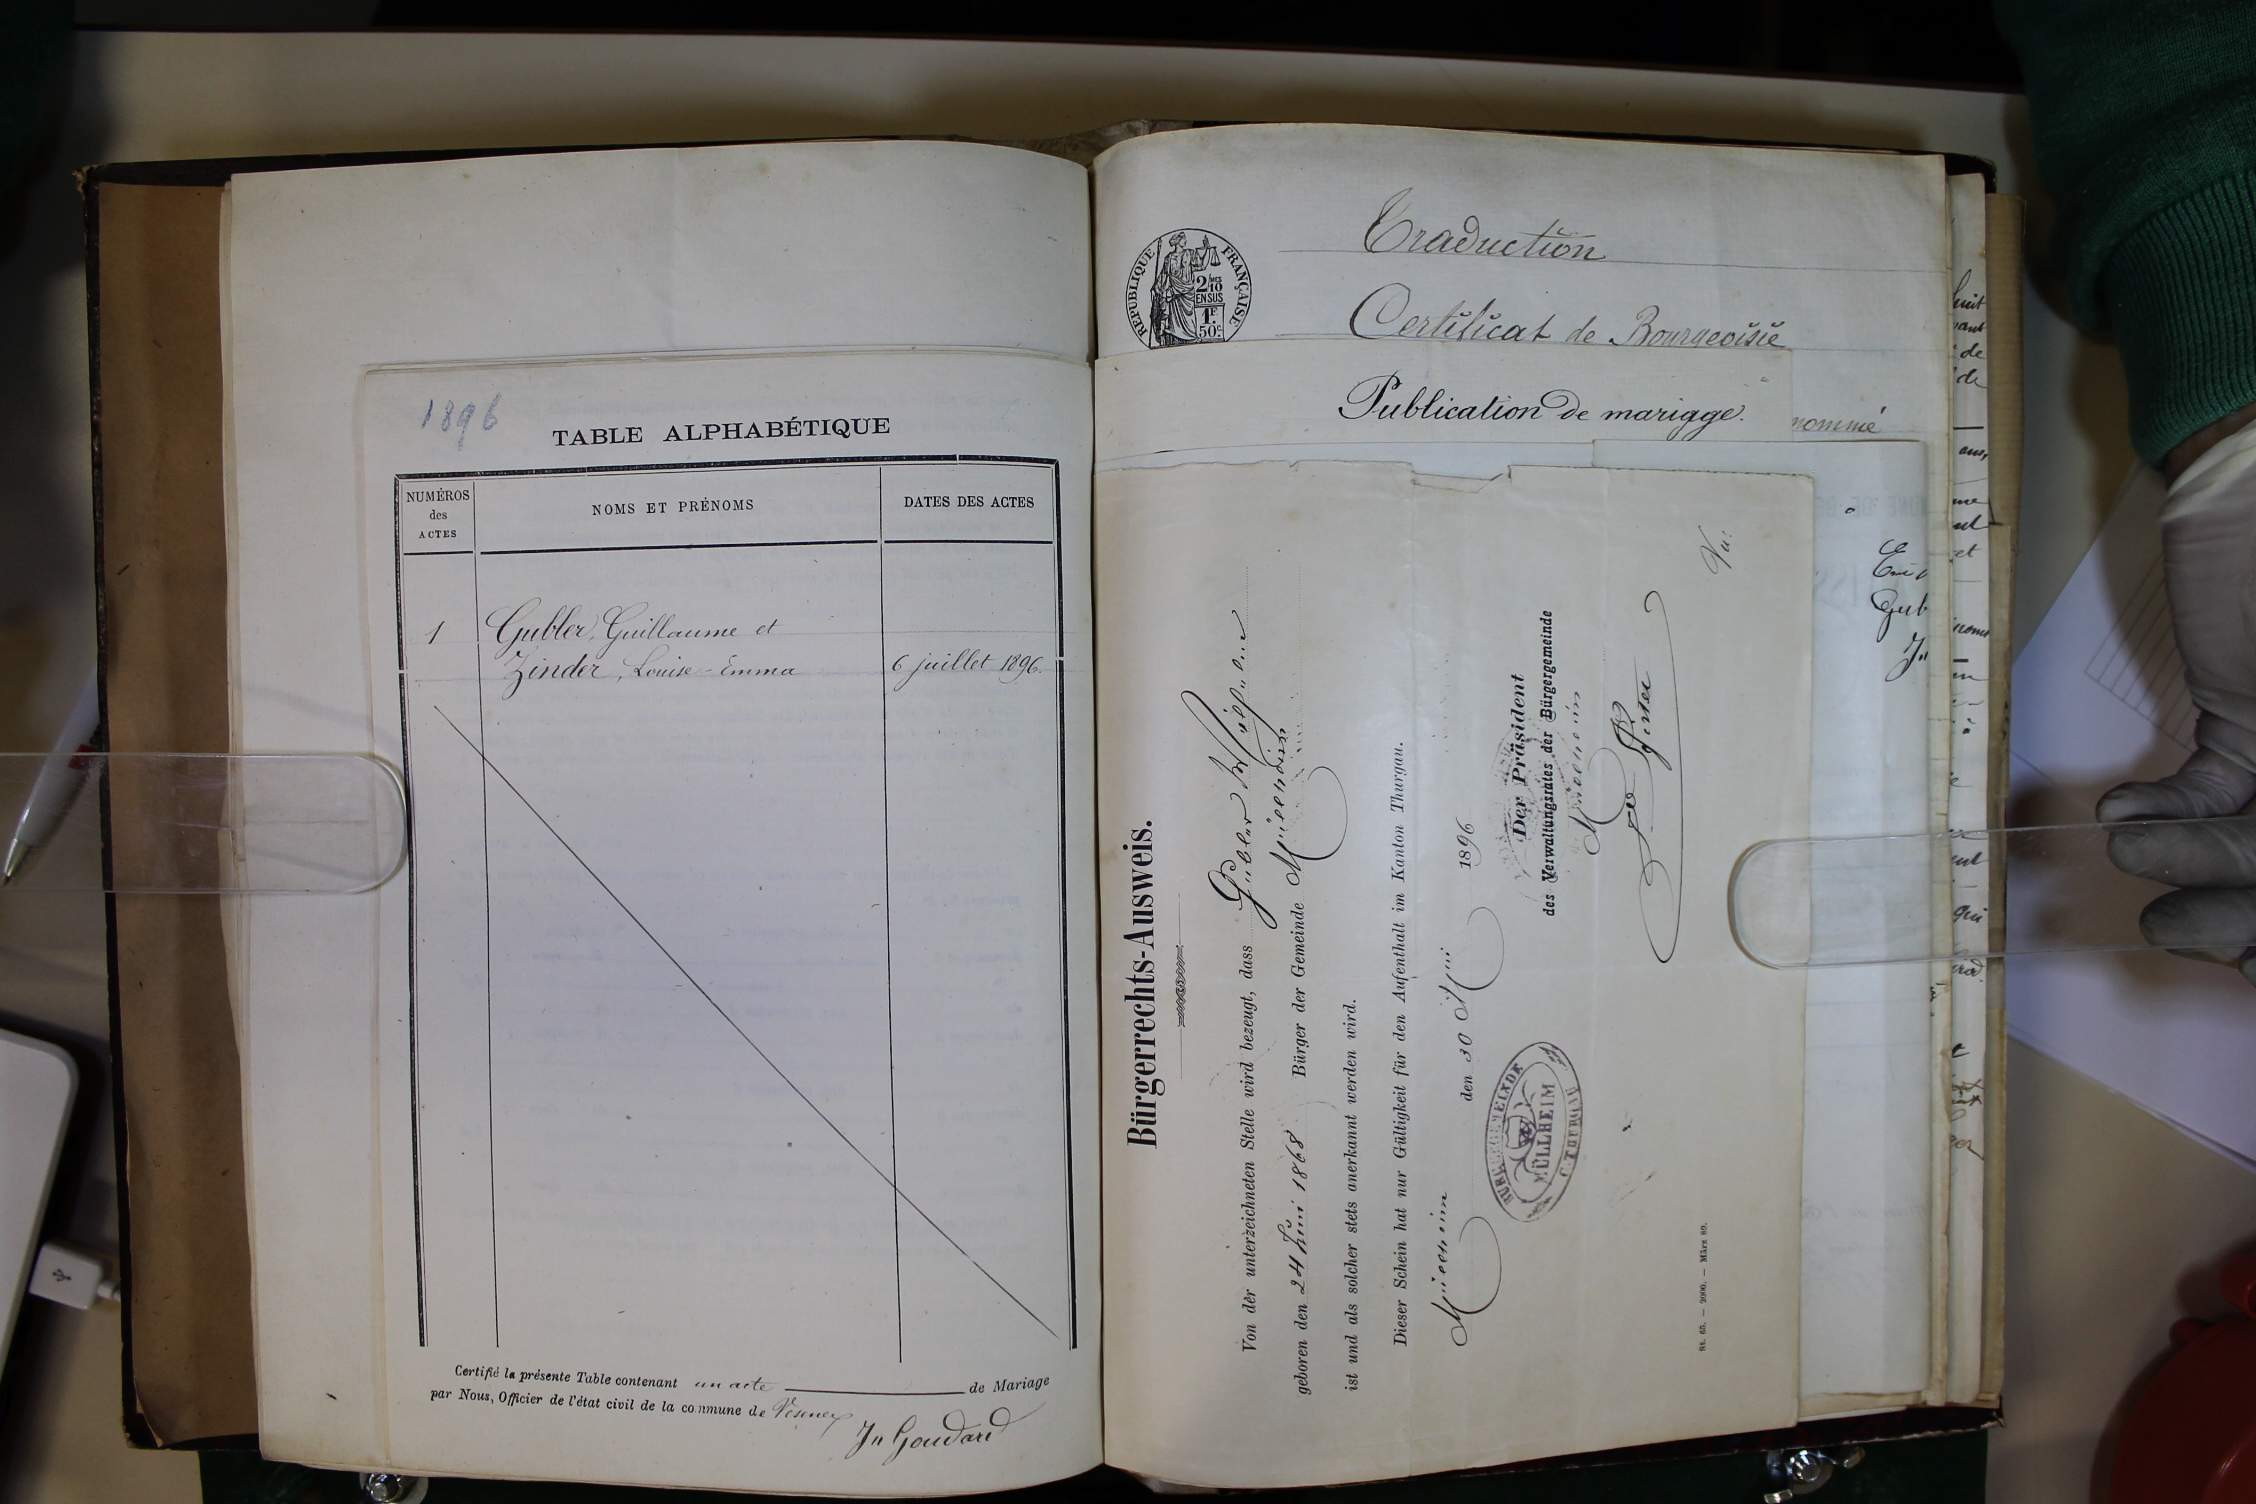 1896
TABLE ALPHABÉTIQUE
NUMÉROS
des
ACTES
NOMS ET PRÉNOMS
DATES DES ACTES
1
Gubler, Guillaume et
Zinder, Louise-Emma
6 juillet 1896.
Certifié la présente Table contenant un acte de Mariage
par Nous, Officier de l'état civil de la commune de Vesenex
Jn Goudard
RÉPUBLIQUE FRANÇAISE
2/10
EN SUS
1F.
50c.
Traduction
Certificat de Bourgeoisie
Publication de mariage.
nommé
Bürgerrechts-Ausweis.
Von der unterzeichneten Stelle wird bezeugt, dass Gubler Wilhelm
geboren den 24 Juni 1868 Bürger der Gemeinde Müllheim
ist und als solcher stets anerkannt werden wird.
Dieser Schein hat nur Gültigkeit für den Aufenthalt im Kanton Thurgau.
Müllheim den 30 Mai 1896
Der Präsident
des Verwaltungsrates der Bürgergemeinde
Müllheim
BÜRGERGEMEINDE
MÜLLHEIM
C. THURGAU
St. 65. — 2000. — März 89.
Gub
Jn
huit
de
de
ans,
et
qui